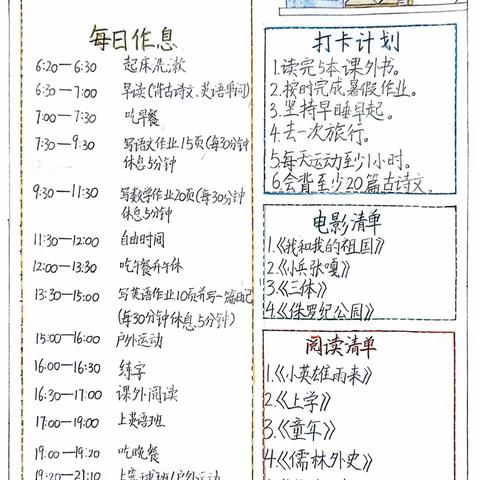 每日作息
6:20—6:30 起床洗漱
6:30—7:00 早读(背古诗文、英语单词)
7:00—7:30 吃早餐
7:30—9:30 写语文作业15页(每30分钟
休息5分钟
9:30—11:30 写数学作业20页(每30分钟
休息5分钟
11:30—12:00 自由时间
12:00—13:30 吃午餐并午休
13:30—15:00 写英语作业10页并写一篇日记
(每30分钟休息5分钟)
15:00—16:00 户外运动
16:00—16:30 练字
16:30—17:00 课外阅读
17:00—19:00 上英语班
19:00—19:20 吃晚餐
19:20—21:10
打卡计划
1.读完5本课外书。
2.按时完成暑假作业。
3.坚持早睡早起。
4.去一次旅行。
5.每天运动至少1小时。
6.会背至少20篇古诗文。
电影清单
1.《我和我的祖国》
2.《小兵张嘎》
3.《三体》
4.《侏罗纪公园》
阅读清单
1.《小英雄雨来》
2.《上学》
3.《童年》
4.《儒林外史》